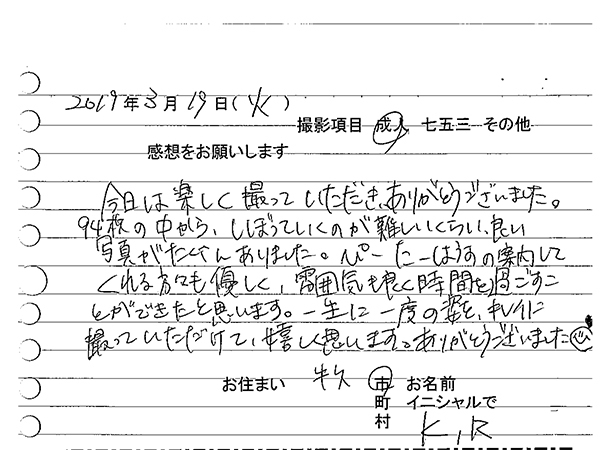 2019年3月19日(火)
撮影項目 成人 七五三 その他
感想をお願いします
今日は楽しく撮っていただき、ありがとうございました。
94枚の中から、しぼっていくのが難しいくらい、良い
写真がたくさんありました。ぴーたーはうすの案内して
くれる方ても優しく、雰囲気も良く時間を過ごすこ
とができたと思います。一生に一度の姿を、キレイに
撮っていただけて、嬉しく思います。ありがとうございました
お住まい 牛久 市 お名前
町 イニシャルで
村 K,R